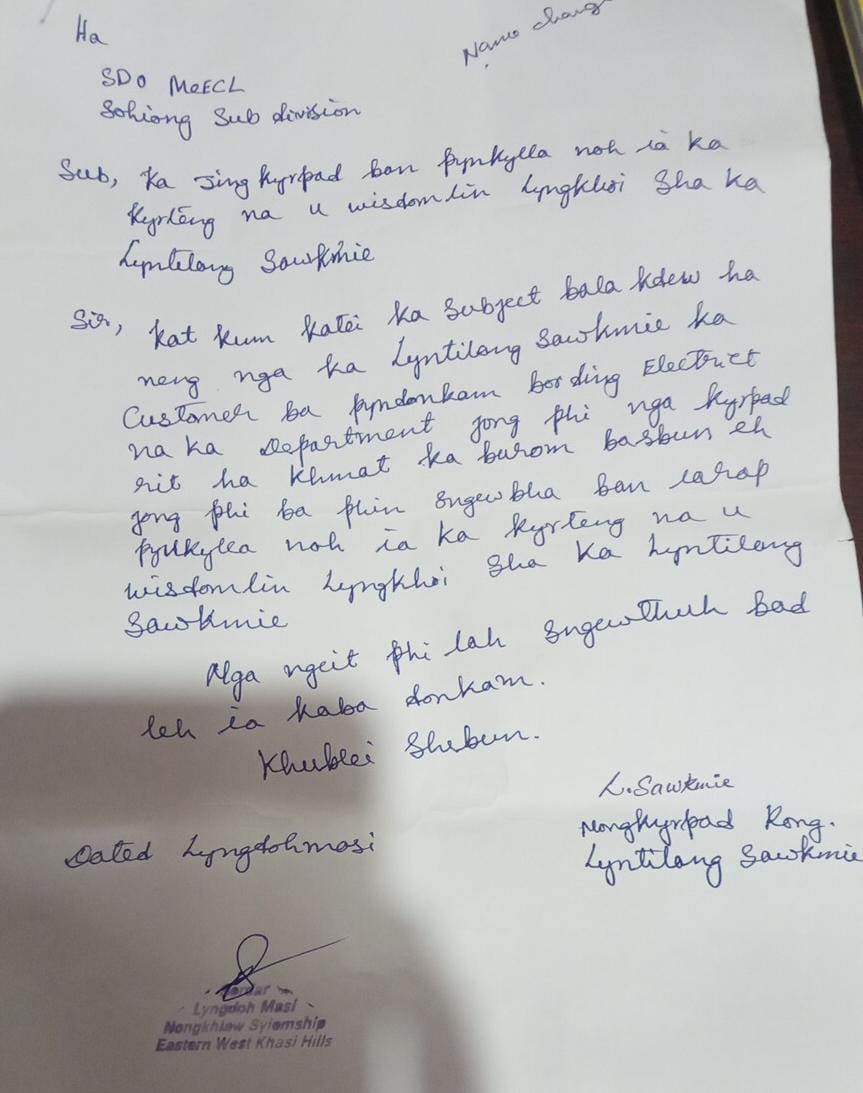 Name chang
Ha
SDO MeECL
Sohiong Sub division
Sub, Ka Jing kyrpad ban pynkylla noh ïa ka
kyrteng na u wisdomlin Lyngkhoi Sha ka
Lyntilang Sawkmie
Sir, kat kum katei ka Subject bala kdew ha
neng nga ka Lyntilang Sawkmie ka
Customer ba pyndonkam bording Electrict
na ka Department jong phi nga kyrpad
rit ha khmat ka burom basbun eh
jong phi ba phin sngewbha ban iarap
pynkylla noh ïa ka kyrteng na u
wisdomlin Lyngkhoi Sha ka Lyntilang
Sawkmie
Nga ngeit phi lah sngewthuh bad
leh ïa kaba donkam.
Khublei Shibun.
L. Sawkmie
Nongkyrpad Kong.
Dated Lyngdohmasi
Lyntilang Sawkmie
Lyngdoh Masi
Nongkhlaw Syiemship
Eastern West Khasi Hills